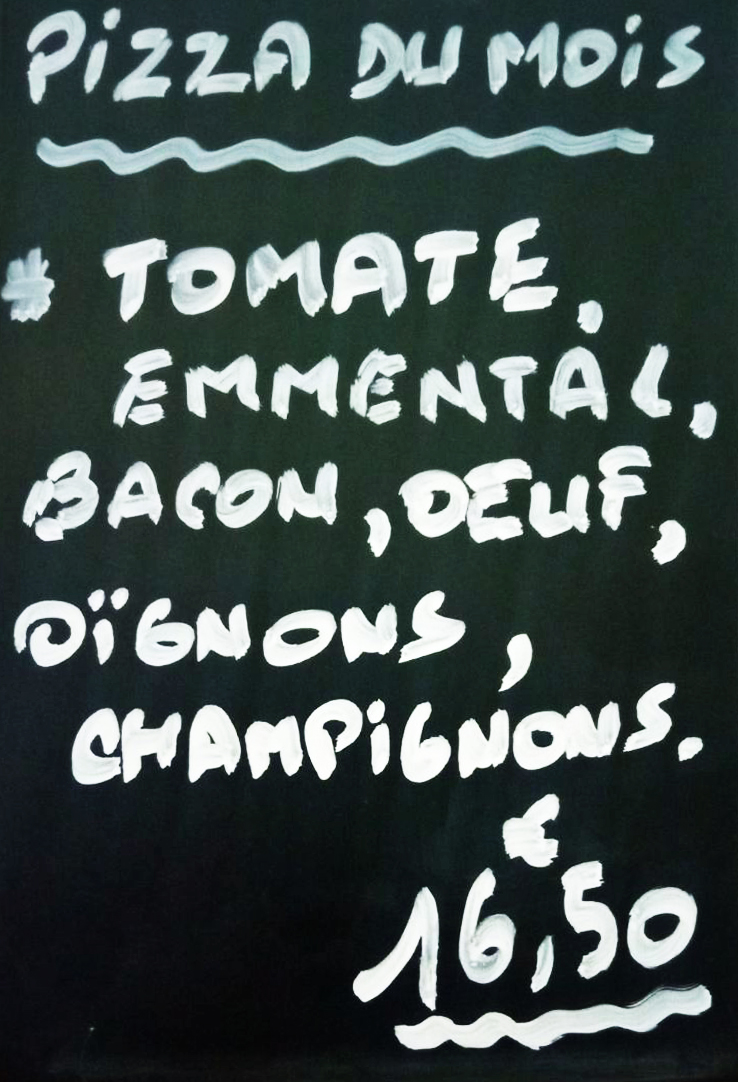 PiZZA DU MOiS
* TOMATE.
EMMENTAL.
BACON, OEUF,
OÏGNONS,
CHAMPiGNONS.
€
16,50